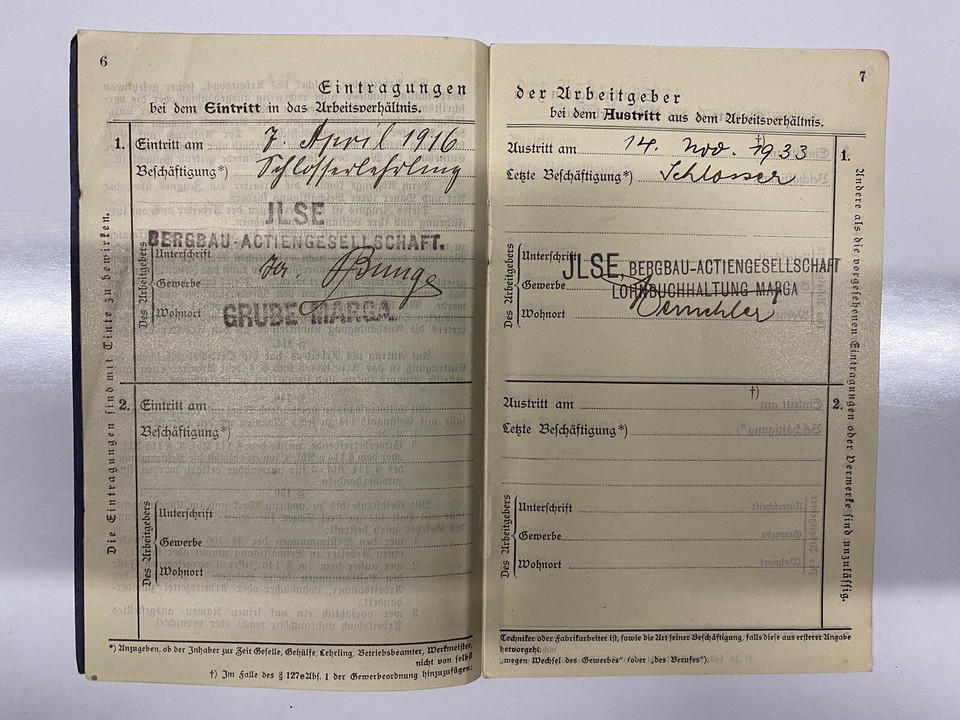 6
Eintragungen
bei dem Eintritt in das Arbeitsverhältnis.
Die Eintragungen sind mit Tinte zu bewirken.
1. Eintritt am 7. April 1916
Beschäftigung*) Schlosserlehrling
JLSE
BERGBAU-ACTIENGESELLSCHAFT.
Des Arbeitgebers
Unterschrift
Gewerbe Bunge
Wohnort
GRUBE MARGA
2. Eintritt am
Beschäftigung*)
Des Arbeitgebers
Unterschrift
Gewerbe
Wohnort
*) Anzugeben, ob der Inhaber zur Zeit Geselle, Gehülfe, Lehrling, Betriebsbeamter, Werkmeister,
nicht von selbst
†) Im Falle des § 127e Abs. 1 der Gewerbeordnung hinzuzufügen:
7
der Arbeitgeber
bei dem Austritt aus dem Arbeitsverhältnis.
Austritt am 14. Nov. †) 1933 1.
Letzte Beschäftigung*) Schlosser
Des Arbeitgebers
Unterschrift
JLSE, BERGBAU-ACTIENGESELLSCHAFT
Gewerbe
LOHNBUCHHALTUNG MARGA
Wohnort
†)
Austritt am 2.
Letzte Beschäftigung*)
Des Arbeitgebers
Unterschrift
Gewerbe
Wohnort
Andere als die vorgesehenen Eintragungen oder Vermerke sind unzulässig.
Techniker oder Fabrikarbeiter ist, sowie die Art seiner Beschäftigung, falls diese aus ersterer Angabe
hervorgeht.
„wegen Wechsel des Gewerbes“ (oder „des Berufes“).